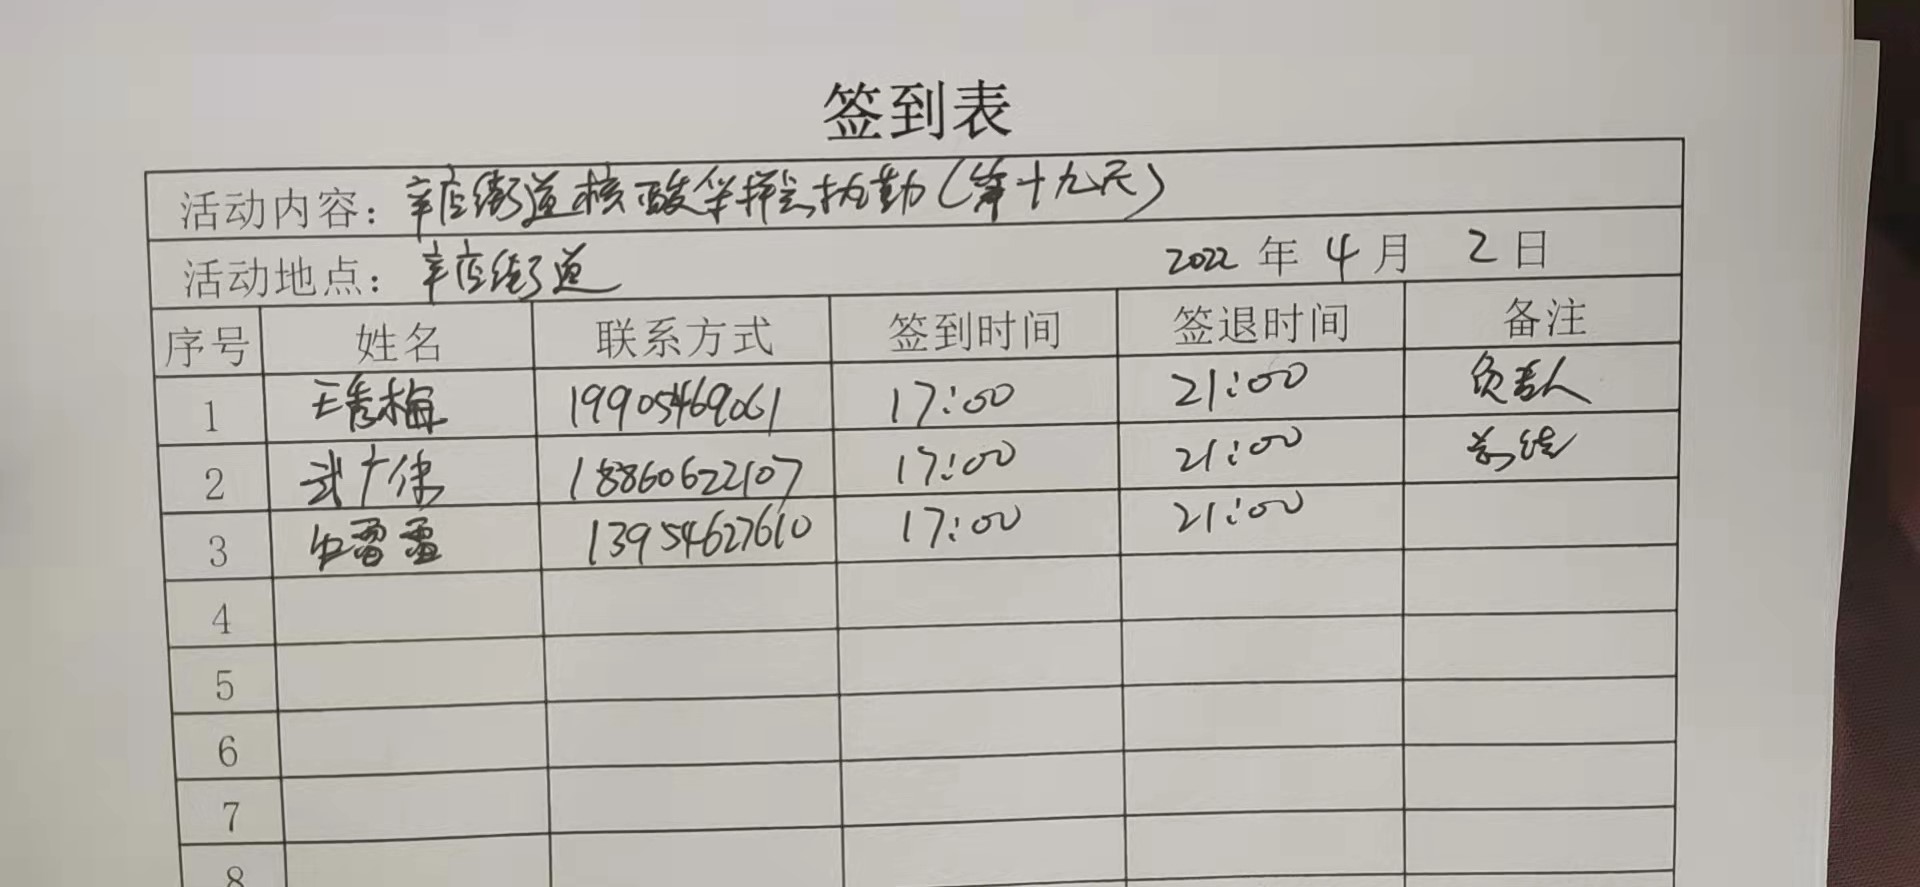 签到表
活动内容：辛店街道核酸采样点执勤（第十九天）
活动地点：辛店街道 2022年4月2日
序号 姓名 联系方式 签到时间 签退时间 备注
1 王秀梅 19905469061 17:00 21:00 负责人
2 武广保 18860622107 17:00 21:00
3 雷雷 13954627610 17:00 21:00
4
5
6
7
8